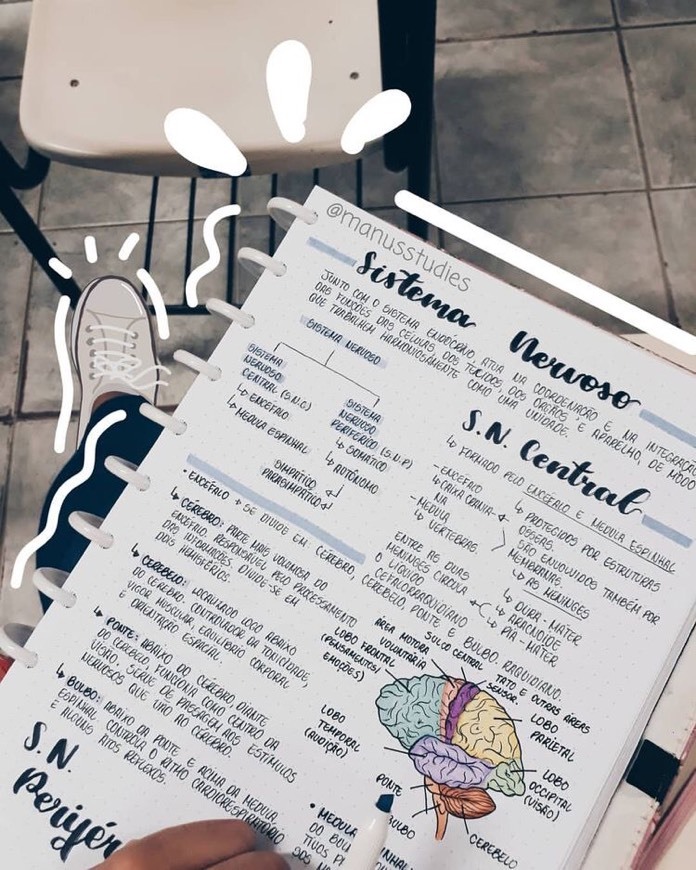 @manusstudies
Sistema Nervoso
JUNTO COM O SISTEMA ENDÓCRINO ATUA NA COORDENAÇÃO E NA INTEGRAÇÃO
DAS FUNÇÕES DAS CÉLULAS DOS TECIDOS, DOS ÓRGÃOS E APARELHO, DE MODO
QUE TRABALHEM HARMONIOSAMENTE COMO UMA UNIDADE.
SISTEMA NERVOSO
SISTEMA
NERVOSO
CENTRAL (S.N.C)
↳ ENCÉFALO
↳ MEDULA ESPINHAL
SISTEMA
NERVOSO
PERIFÉRICO (S.N.P)
↳ SOMÁTICO
↳ AUTÔNOMO
SIMPÁTICO
PARASIMPÁTICO
S.N. Central
↳ FORMADO PELO ENCÉFALO E MEDULA ESPINHAL
↳ PROTEGIDOS POR ESTRUTURAS
ÓSSEAS.
- ENCÉFALO
↳ CAIXA CRANIA-
NA
- MEDULA
↳ VERTEBRAS
SÃO ENVOLVIDOS TAMBÉM POR
MEMBRANAS
↳ AS MENINGES
↳ DURA-MATER
↳ ARACNOIDE
↳ PIA-MATER
ENTRE AS DUAS
MENINGES CIRCULA
O LÍQUIDO
CEFALORRAQUIDIANO
• ENCÉFALO → SE DIVIDE EM CÉREBRO, CEREBELO, PONTE E BULBO. RAQUIDIANO.
↳ CÉREBRO: PARTE MAIS VOLUMOSA DO
ENCÉFALO. RESPONSÁVEL PELO PROCESSAMENTO
DAS INFORMAÇÕES. DIVIDE-SE EM
DOIS HEMISFÉRIOS.
↳ CEREBELO: LOCALIZADO LOGO ABAIXO
DO CÉREBRO, CONTROLADOR DA TONICIDADE,
VIGOR MUSCULAR, EQUILÍBRIO CORPORAL
E ORIENTAÇÃO ESPACIAL.
↳ PONTE: ABAIXO DO CÉREBRO, DIANTE
DO CEREBELO, FUNCIONA COMO CENTRO DA
VISÃO, SERVE DE PASSAGEM AOS ESTÍMULOS
NERVOSOS QUE VÃO AO CÉREBRO.
↳ BULBO: ABAIXO DA PONTE E ACIMA DA MEDULA
ESPINHAL CONTROLA O RITMO CARDIORESPIRATÓRIO
E ALGUNS ATOS REFLEXOS.
ÁREA MOTORA
VOLUNTÁRIA
SULCO CENTRAL
TATO E OUTRAS ÁREAS
SENSOR.
LOBO FRONTAL
(PENSAMENTOS/
EMOÇÕES)
LOBO
PARIETAL
LOBO
TEMPORAL
(AUDIÇÃO)
LOBO
OCCIPITAL
(VISÃO)
PONTE
BULBO
CEREBELO
S.N.
Perifér
• MEDULA